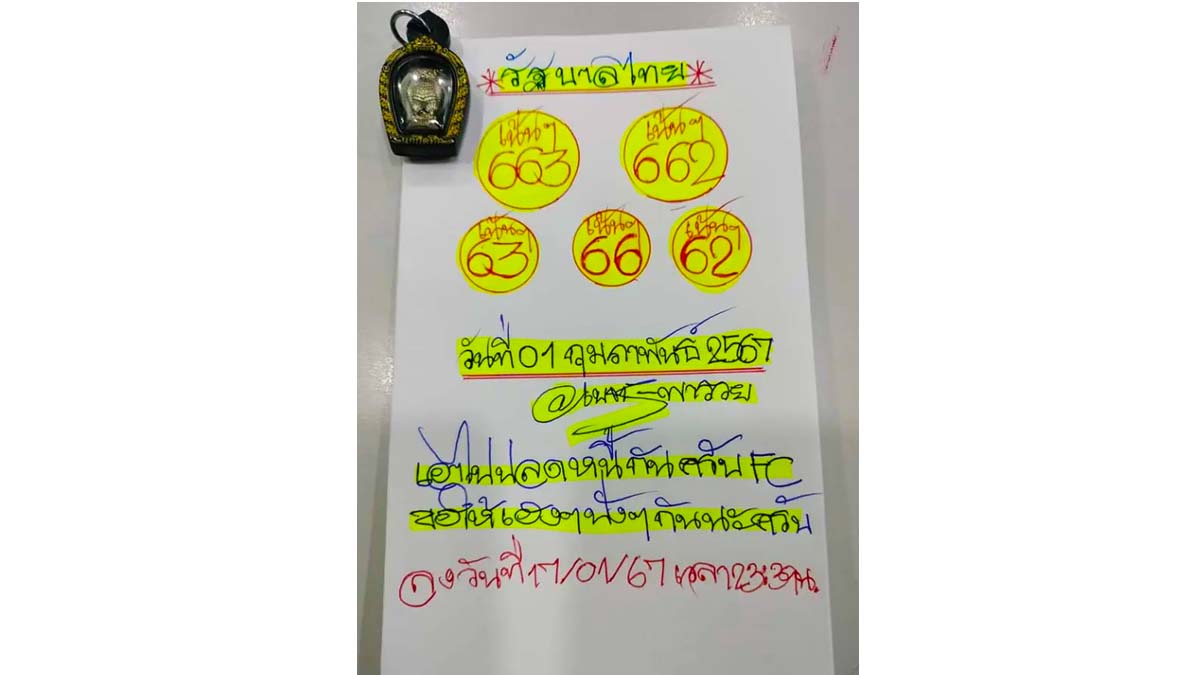 *รัฐบาลไทย*
เน้นๆ เน้นๆ
663 662
เน้นๆ เน้นๆ เน้นๆ
63 66 62
วันที่ 01 กุมภาพันธ์ 2567
@ พารวย
เอาไปปลดหนี้กันครับ FC
ขอให้เฮงๆปังๆกันนะครับ
ลงวันที่ 17/01/67 เวลา 23:39น.